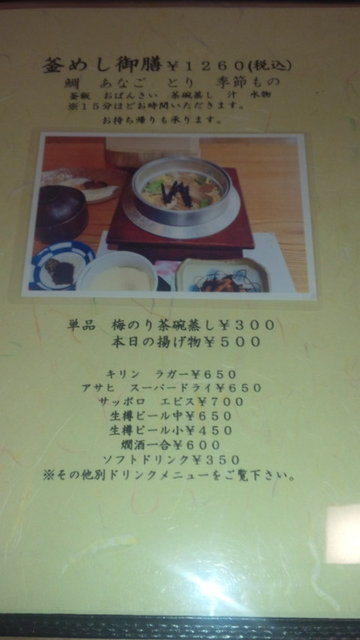 釜めし御膳￥１２６０(税込)
鯛　あなご　とり　季節もの
釜飯　おばんさい　茶碗蒸し　汁　水物
※１５分ほどお時間いただきます。
お持ち帰りも承ります。
単品　梅のり茶碗蒸し￥３００
本日の揚げ物￥５００
キリン　ラガー￥６５０
アサヒ　スーパードライ￥６５０
サッポロ　エビス￥７００
生樽ビール中￥６５０
生樽ビール小￥４５０
燗酒一合￥６００
ソフトドリンク￥３５０
※その他別ドリンクメニューをご覧下さい。